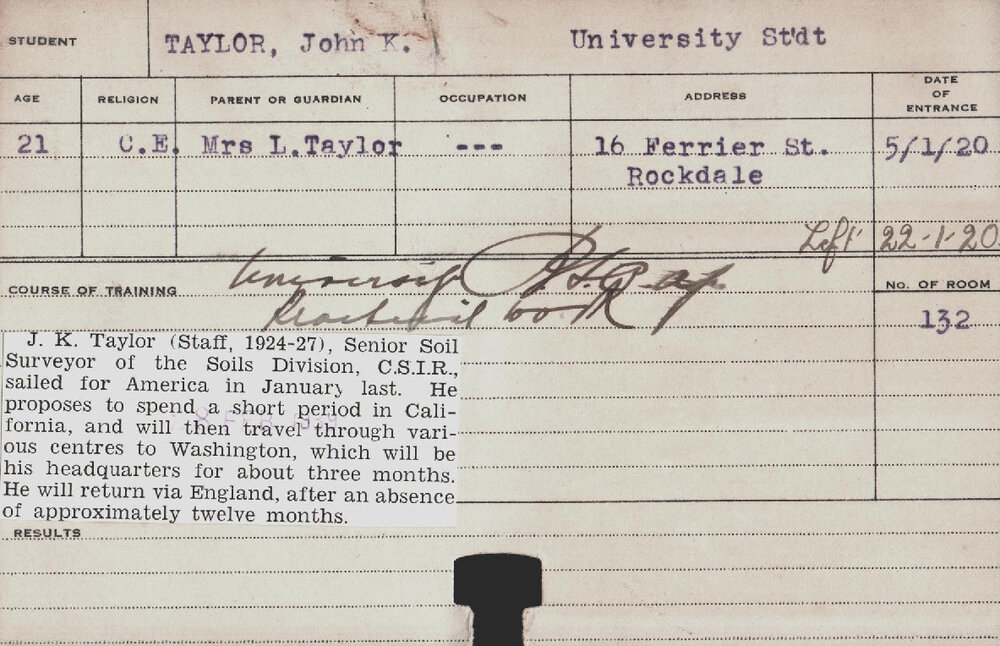 STUDENT TAYLOR, John K. University St'dt
AGE RELIGION PARENT OR GUARDIAN OCCUPATION ADDRESS DATE OF ENTRANCE
21 C.E. Mrs L.Taylor --- 16 Ferrier St. 5/1/20
Rockdale
Left 22-1-20
COURSE OF TRAINING University No. OF ROOM
work 132
J. K. Taylor (Staff, 1924-27), Senior Soil
Surveyor of the Soils Division, C.S.I.R.,
sailed for America in January last. He
proposes to spend a short period in Cali-
fornia, and will then travel through vari-
ous centres to Washington, which will be
his headquarters for about three months.
He will return via England, after an absence
of approximately twelve months.
RESULTS